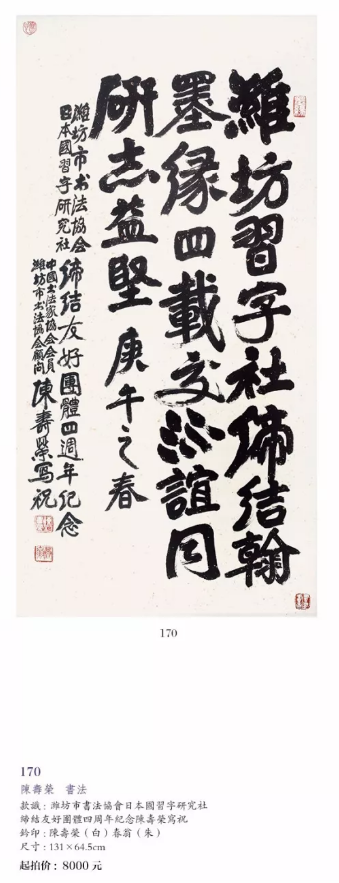 濰坊習字社締结翰
墨缘四載交流誼同
研志益堅 庚午之春
濰坊市书法協会
日本國習字研究社
締结友好團體四週年纪念
中國书法家協会会員
濰坊市书法協会顧问
陳壽榮写祝
170
170
陳壽榮 書法
款識：濰坊市書法協會日本國習字研究社
締結友好團體四周年紀念陳壽榮寫祝
鈐印：陳壽榮（白）春翁（朱）
尺寸：131×64.5cm
起拍价：8000 元